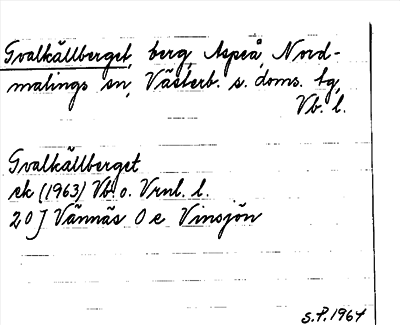 Tvalkällberget, berg, Aspeå, Nord-
malings sn, Västerb. s. doms. tg,
Vb. l.
Tvalkällberget
ek (1963) Vb o. Vrnl. l.
20 J Vännäs O e Vinsjön
S.P. 1964